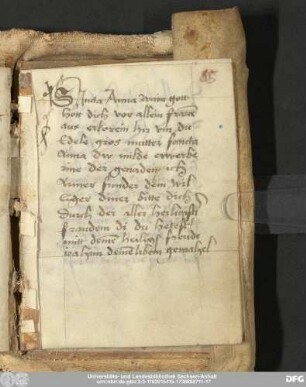 Sancta Anna wan got
hott dich vor allein frauen
aus erkorein hir vm du
Edele gros mutter sancta
Anna dw milde erwerbe
mir der genaden ich
armer sunder dein wil
liger diner bitte dich
durch der aller heiligste
freuden di du hetest
mitt deine heilige freude
ioachim deine liben gemahel
Universitäts- und Landesbibliothek Sachsen-Anhalt
DFG